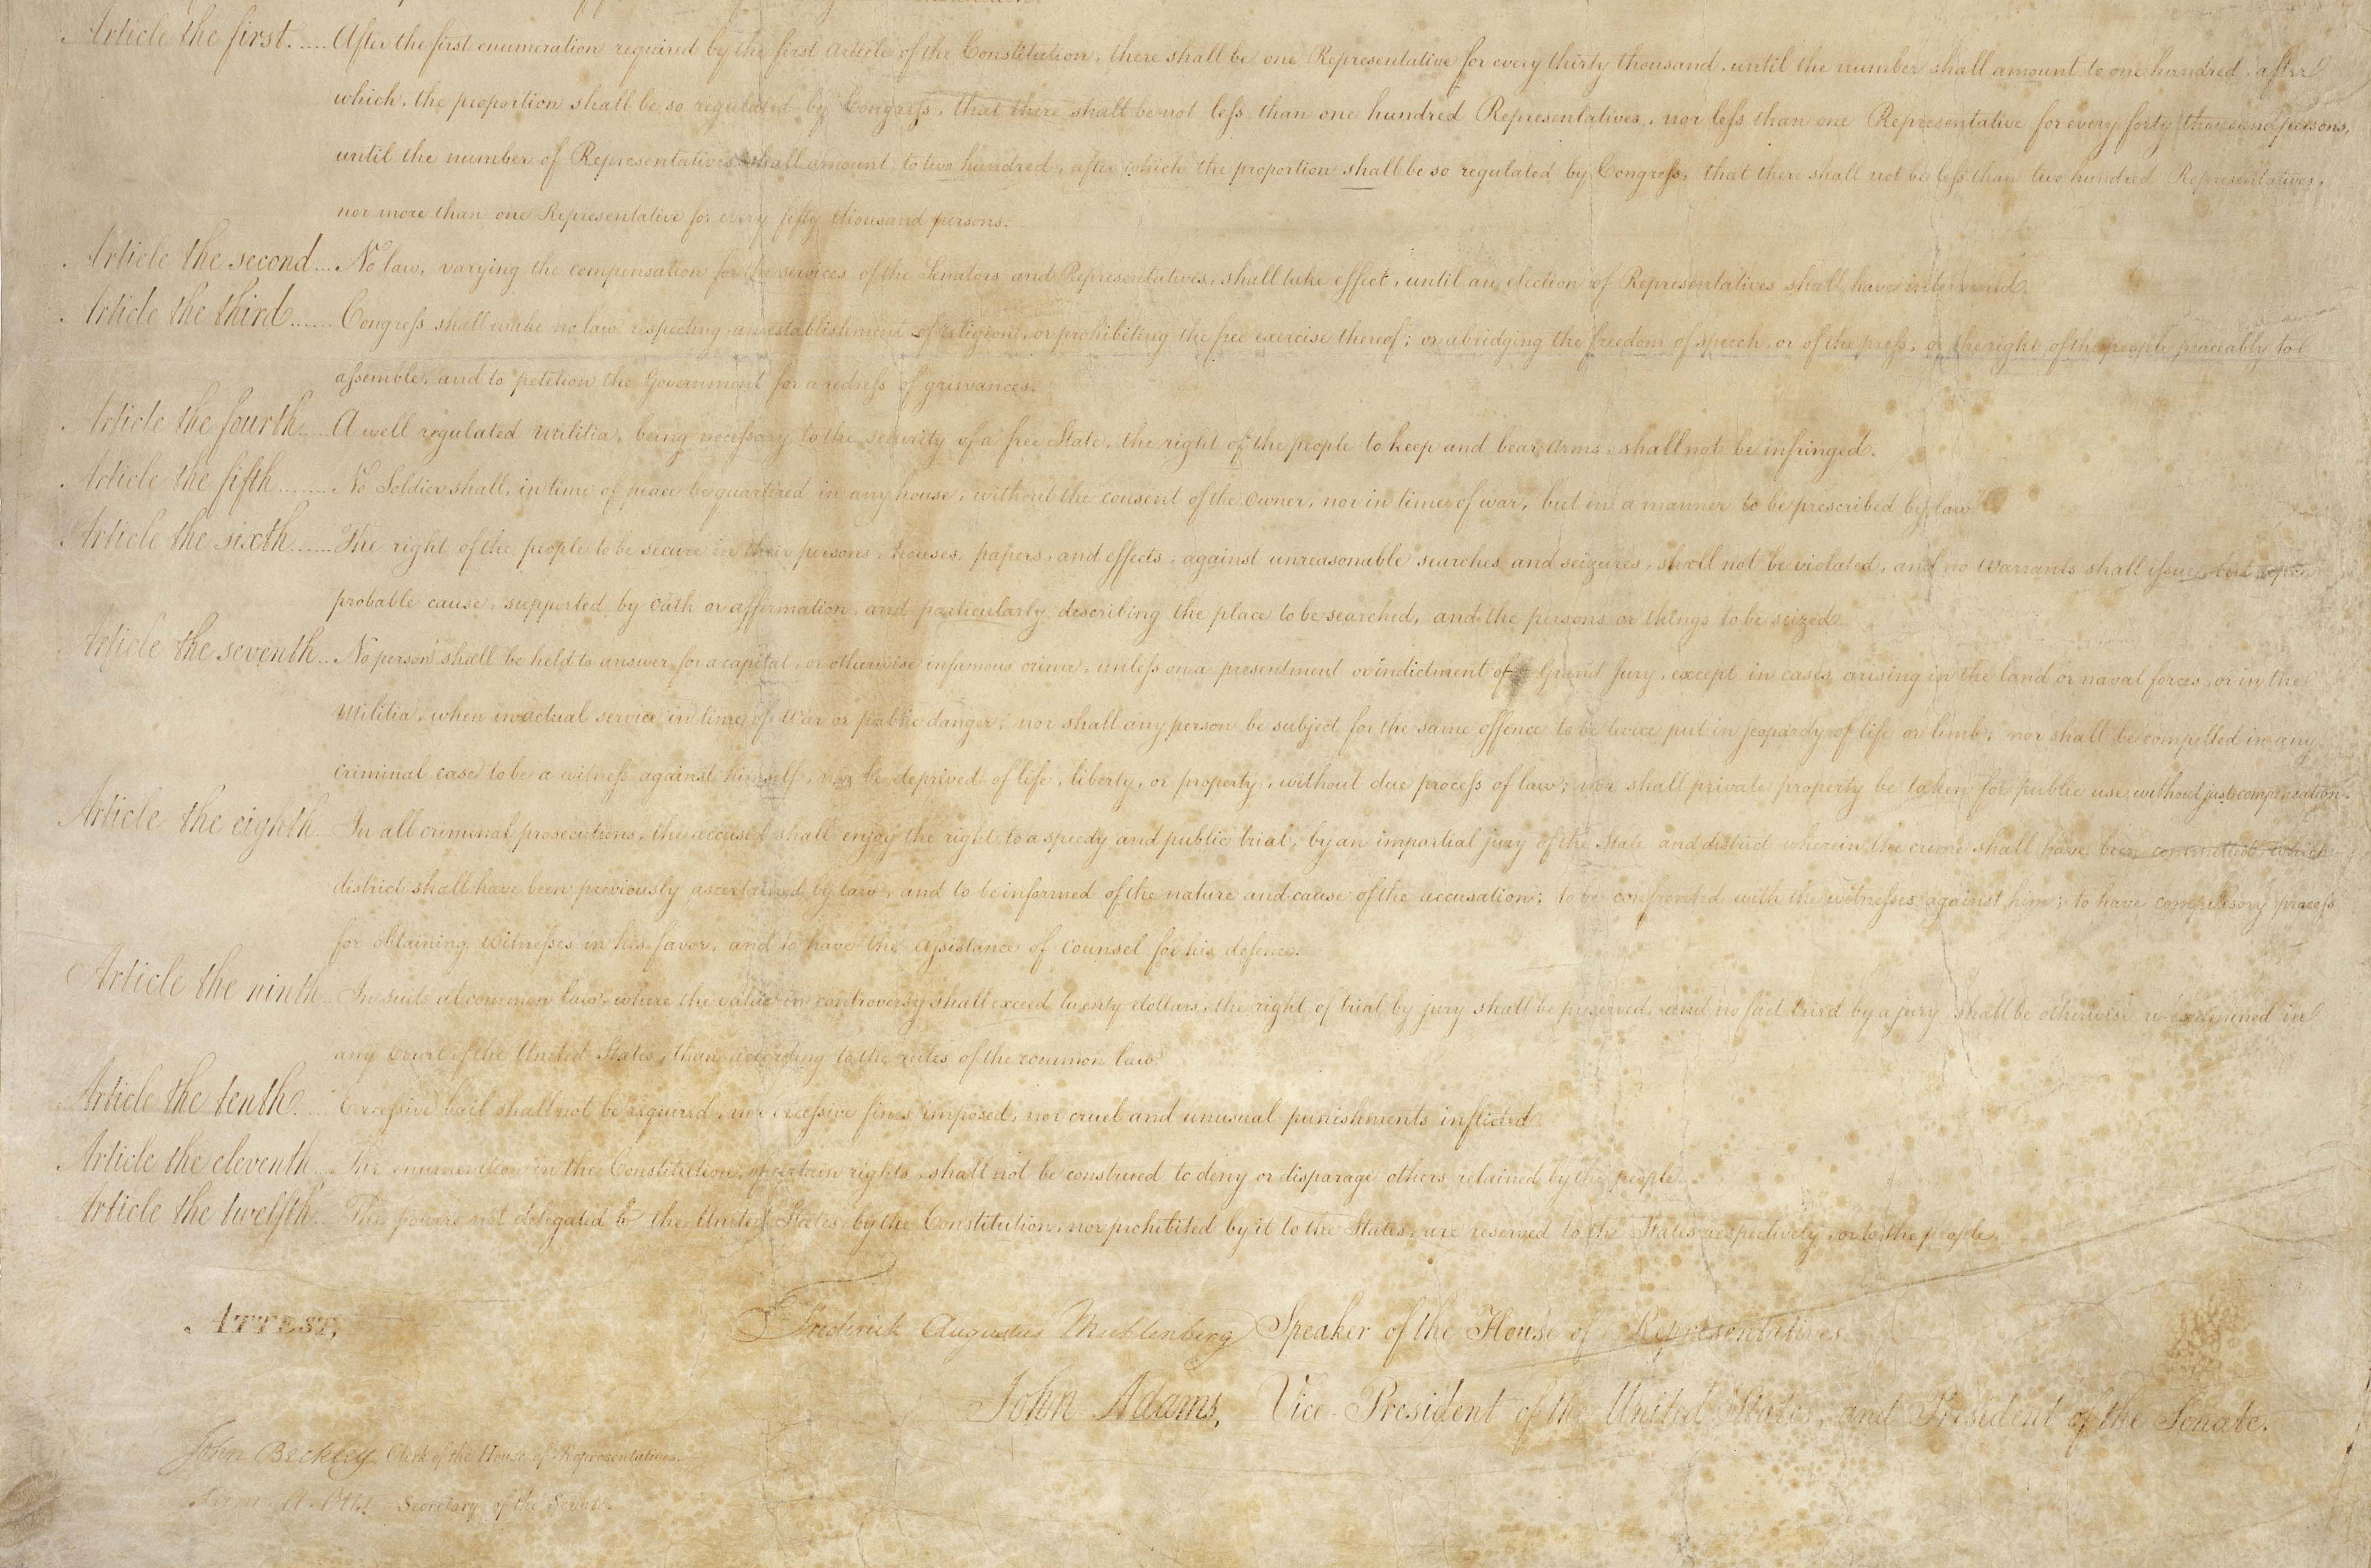 Article the first..... After the first enumeration required by the first Article of the Constitution, there shall be one Representative for every thirty thousand, until the number shall amount to one hundred, after
which, the proportion shall be so regulated by Congress, that there shall be not less than one hundred Representatives, nor less than one Representative for every forty thousand persons,
until the number of Representatives shall amount to two hundred, after which the proportion shall be so regulated by Congress, that there shall not be less than two hundred Representatives,
nor more than one Representative for every fifty thousand persons.
Article the second... No law, varying the compensation for the services of the Senators and Representatives, shall take effect, until an election of Representatives shall have intervened.
Article the third...... Congress shall make no law respecting an establishment of religion, or prohibiting the free exercise thereof; or abridging the freedom of speech, or of the press, or the right of the people peaceably to
assemble, and to petition the Government for a redress of grievances.
Article the fourth.... A well regulated Militia, being necessary to the security of a free State, the right of the people to keep and bear Arms, shall not be infringed.
Article the fifth........ No Soldier shall, in time of peace be quartered in any house, without the consent of the Owner, nor in time of war, but in a manner to be prescribed by law.
Article the sixth...... The right of the people to be secure in their persons, houses, papers, and effects, against unreasonable searches and seizures, shall not be violated, and no Warrants shall issue, but upon
probable cause, supported by Oath or affirmation, and particularly describing the place to be searched, and the persons or things to be seized.
Article the seventh.. No person shall be held to answer for a capital, or otherwise infamous crime, unless on a presentment or indictment of a Grand Jury, except in cases arising in the land or naval forces, or in the
Militia, when in actual service in time of War or public danger; nor shall any person be subject for the same offence to be twice put in jeopardy of life or limb; nor shall be compelled in any
criminal case to be a witness against himself, nor be deprived of life, liberty, or property, without due process of law; nor shall private property be taken for public use without just compensation.
Article the eighth.. In all criminal prosecutions, the accused shall enjoy the right to a speedy and public trial, by an impartial jury of the State and district wherein the crime shall have been committed, which
district shall have been previously ascertained by law, and to be informed of the nature and cause of the accusation; to be confronted with the witnesses against him; to have compulsory process
for obtaining Witnesses in his favor, and to have the Assistance of Counsel for his defence.
Article the ninth.. In suits at common law, where the value in controversy shall exceed twenty dollars, the right of trial by jury shall be preserved, and no fact tried by a jury shall be otherwise re-examined in
any Court of the United States, than according to the rules of the common law.
Article the tenth.... Excessive bail shall not be required, nor excessive fines imposed, nor cruel and unusual punishments inflicted.
Article the eleventh... The enumeration in the Constitution, of certain rights, shall not be construed to deny or disparage others retained by the people.
Article the twelfth... The powers not delegated to the United States by the Constitution, nor prohibited by it to the States, are reserved to the States respectively, or to the people.
ATTEST,
Frederick Augustus Muhlenberg Speaker of the House of Representatives
John Adams, Vice-President of the United States, and President of the Senate.
John Beckley, Clerk of the House of Representatives.
Sam. A. Otis Secretary of the Senate.